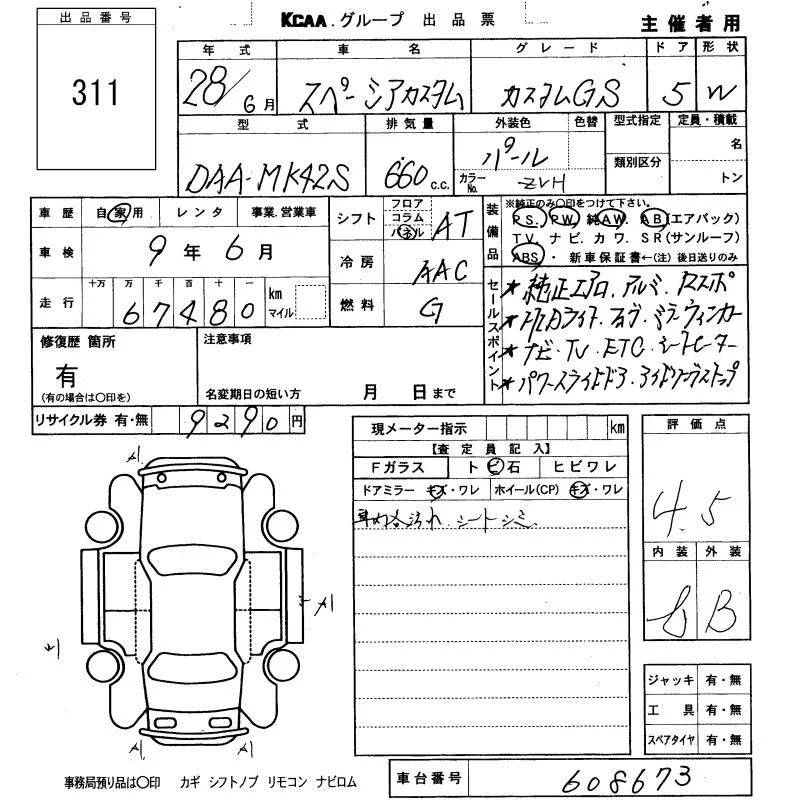 出品番号
311
KCAA.グループ 出品票
主催者用
年式 車名 グレード ドア 形状
28/6月 スペーシアカスタム カスタムGS 5 W
型式 排気量 外装色 色替 型式指定 定員・積載
DAA-MK42S 660c.c. パール 名
カラーNo. ZVH 類別区分 トン
車歴 自家用 レンタ 事業.営業車
シフト フロア コラム パネル AT
装備品
※純正のみ○印をつけて下さい。
P S. P W. 純 A W. A B (エアバック)
T V. ナ ビ. カ ワ. S R (サンルーフ)
A B S. ・ 新車保証書←(注) 後日送りのみ
車検 9年6月
冷房 AAC
走行 十万 万 千 百 十 一
67480 km マイル
燃料 G
セールスポイント
★純正エアロ.アルミ.Rスポ
★HIDライト.フォグ.ミラーウィンカー
★ナビ・TV・ETC・シートヒーター
★パワースライドドア.アイドリングストップ
修復歴 箇所
有
(有の場合は○印を)
注意事項
名変期日の短い方 月 日まで
リサイクル券 有・無 9290円
現メーター指示 km
【査定員記入】
Fガラス トビ石 ヒビワレ
ドアミラー キズ・ワレ ホイール(CP) キズ・ワレ
車内汚れ.シートシミ.
評価点
4.5
内装 外装
B
ジャッキ 有・無
工具 有・無
スペアタイヤ 有・無
事務局預り品は○印 カギ シフトノブ リモコン ナビロム
車台番号 608673